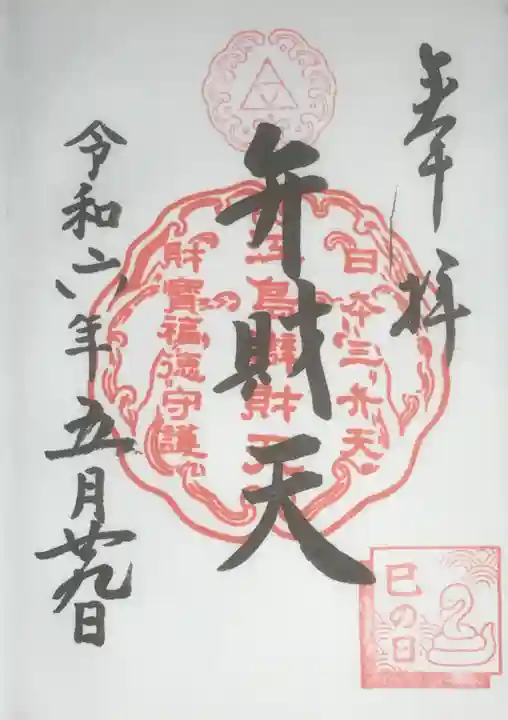 奉拝
日本三弁天
江島辨財天
財寳福徳守護
弁財天
令和六年五月廿九日
巳の日